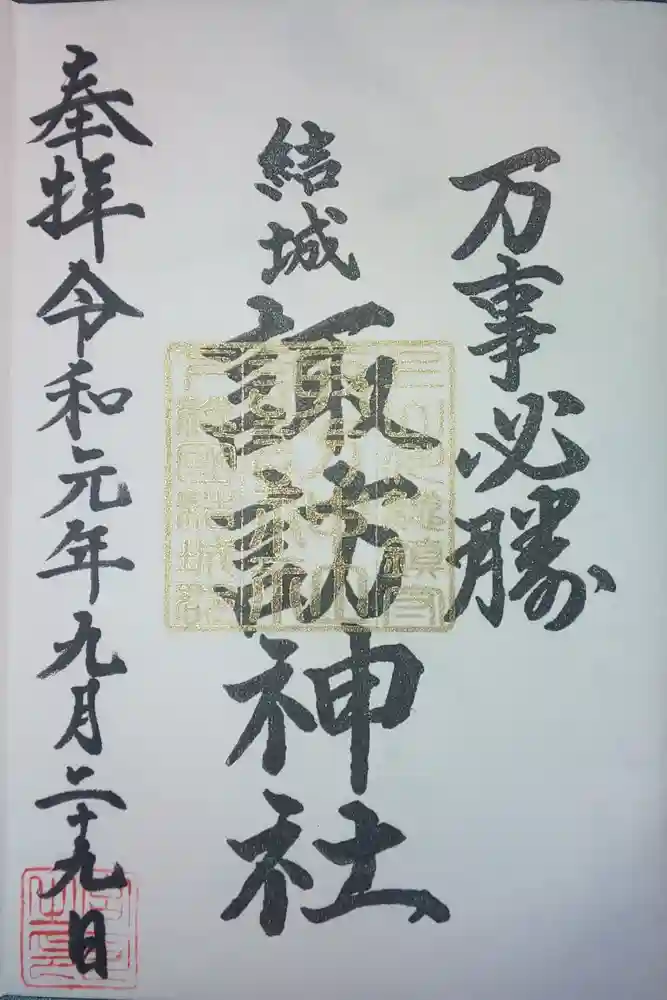 万事必勝
結城
諏訪神社
奉拝 令和元年九月二十九日